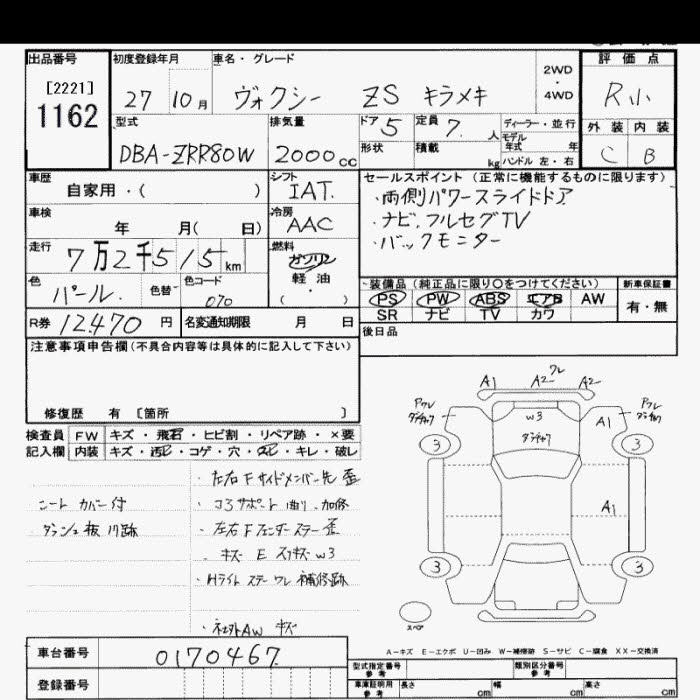 出品番号
[2221]
1162
初度登録年月
27 10 月
車名・グレード
ヴォクシー ZS キラメキ
2WD
4WD
評価点
R小
外装 内装
C B
型式
DBA-ZRR80W
排気量
2000 cc
ドア 5
形状
定員 7. 人
積載 kg
ディーラー・並行
モデル
年式 年
ハンドル 左・右
車歴
自家用・( )
シフト
IAT.
車検
年 月( 日)
冷房
AAC
走行
7万2千515 km
燃料
ガソリン
軽油
・
( )
色
パール.
色替
色コード
070
R券 12470 円
名変通知期限 月 日
セールスポイント(正常に機能するものに限ります)
・両側パワースライドドア
・ナビ,フルセグTV
・バックモニター
装備品(純正品に限り○をつけてください)
新車保証書
PS PW ABS エアB AW
SR ナビ TV カワ
有・無
後日品
注意事項申告欄(不具合内容等は具体的に記入して下さい)
修復歴 有 〔箇所 〕
検査員
記入欄
FW キズ・飛石・ヒビ割・リペア跡・×要
内装 キズ・汚れ・コゲ・穴・スレ・キレ・破レ
シートカバー付
・ダッシュ板 ハリ跡
・左右Fサイドメンバー先 歪
・コアサポート曲り.加修
・左右Fフェンダーステー歪
・キズ E スリキズ W3
・Hライト ステーワレ 補修跡
・社外AW キズ
A1 A2 ワレ A2
W3
A1
A1
3 3
3 3
スペア
A-キズ E-エクボ U-凹み W-補修跡 S-サビ C-腐食 XX-交換済
車台番号 0170467
登録番号
型式指定番号
参考
類別区分番号
参考
車庫証明用
参考
長さ cm 幅 cm 高さ cm